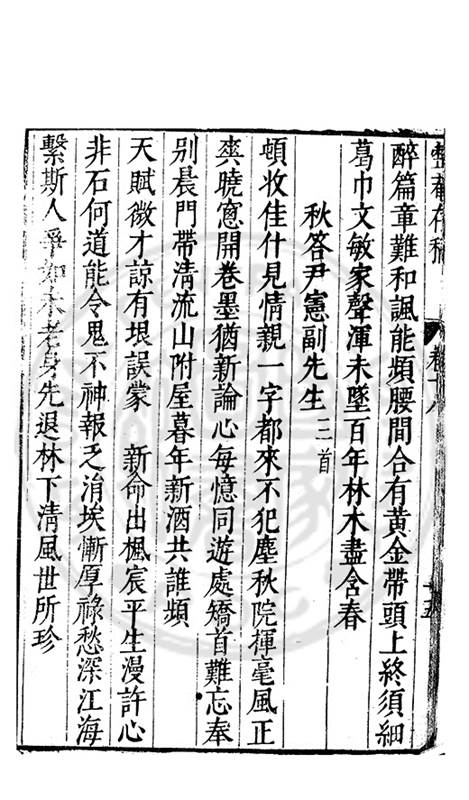 整菴存稿 卷十八 十五
醉篇章難和諷能頻腰間合有黃金帶頭上終須細
葛巾文敏家聲渾未墜百年林木盡含春
秋答尹憲副先生三首
頓收佳什見情親一字都來不犯塵秋院揮毫風正
爽曉窻開卷墨猶新論心每憶同遊處矯首難忘奉
别晨門帶清流山附屋暮年新酒共誰頻
天賦微才諒有垠誤蒙 新命出楓宸平生漫許心
非石何道能令鬼不神報乏涓埃慚厚祿愁深江海
繫斯人爭如木老身先退林下清風世所珍